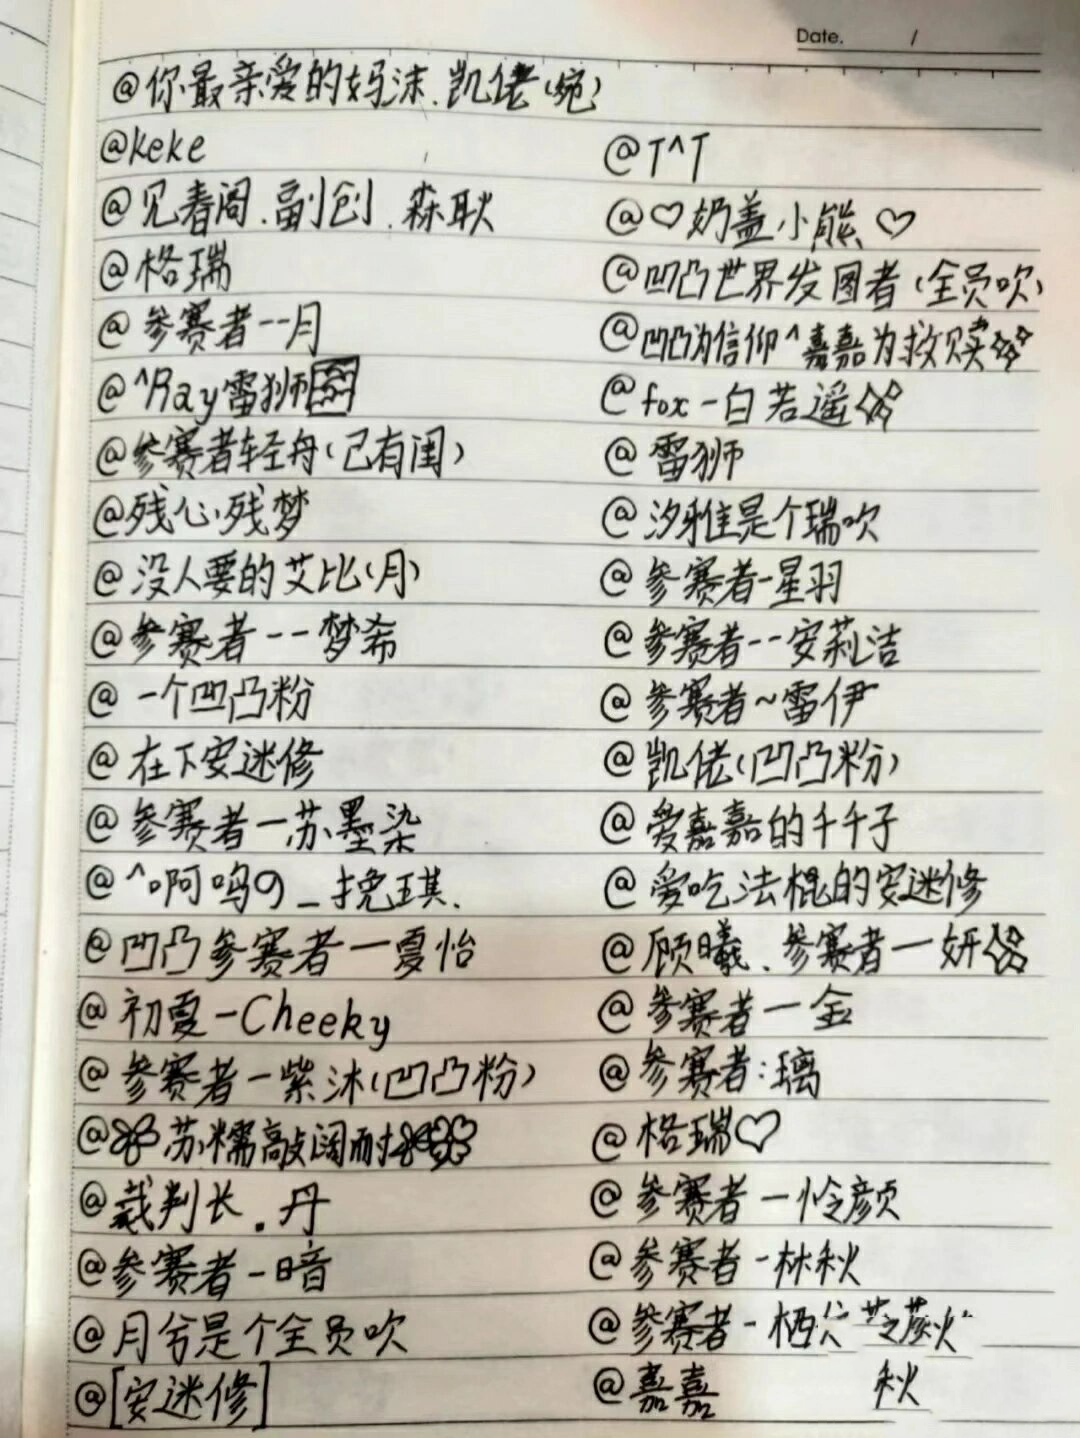 Date. /
@你最亲爱的妈沫.凯佬(宛)
@keke
@T^T
@见春阁.副创.森耿
@♡奶盖小熊♡
@格瑞
@凹凸世界发图者(全员吹)
@参赛者--月
@凹凸为信仰^嘉嘉为救赎
@^Ray雷狮
@fox-白若遥
@参赛者轻舟(己有闺)
@雷狮
@残心残梦
@汐雅是个瑞吹
@没人要的艾比(月)
@参赛者-星羽
@参赛者--梦希
@参赛者--安莉洁
@一个凹凸粉
@参赛者~雷伊
@在下安迷修
@凯佬(凹凸粉)
@参赛者一苏墨染
@爱嘉嘉的千千子
@^啊呜の_挽琪.
@爱吃法棍的安迷修
@凹凸参赛者一夏怡
@顾曦.参赛者一妍
@初夏-Cheeky
@参赛者一金
@参赛者-紫沐(凹凸粉)
@参赛者:璃
@苏糯敲阔耐
@格瑞♡
@裁判长.丹
@参赛者一怜颜
@参赛者-暗
@参赛者-林秋
@月兮是个全员吹
@参赛者-栖
@[安迷修]
@嘉嘉 秋